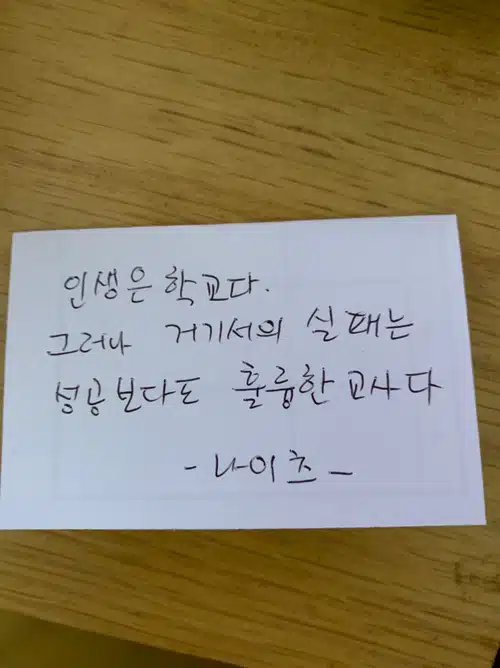 인생은 학교다.
그러나 거기서의 실패는
성공보다도 훌륭한 교사다
- 나이츠 -